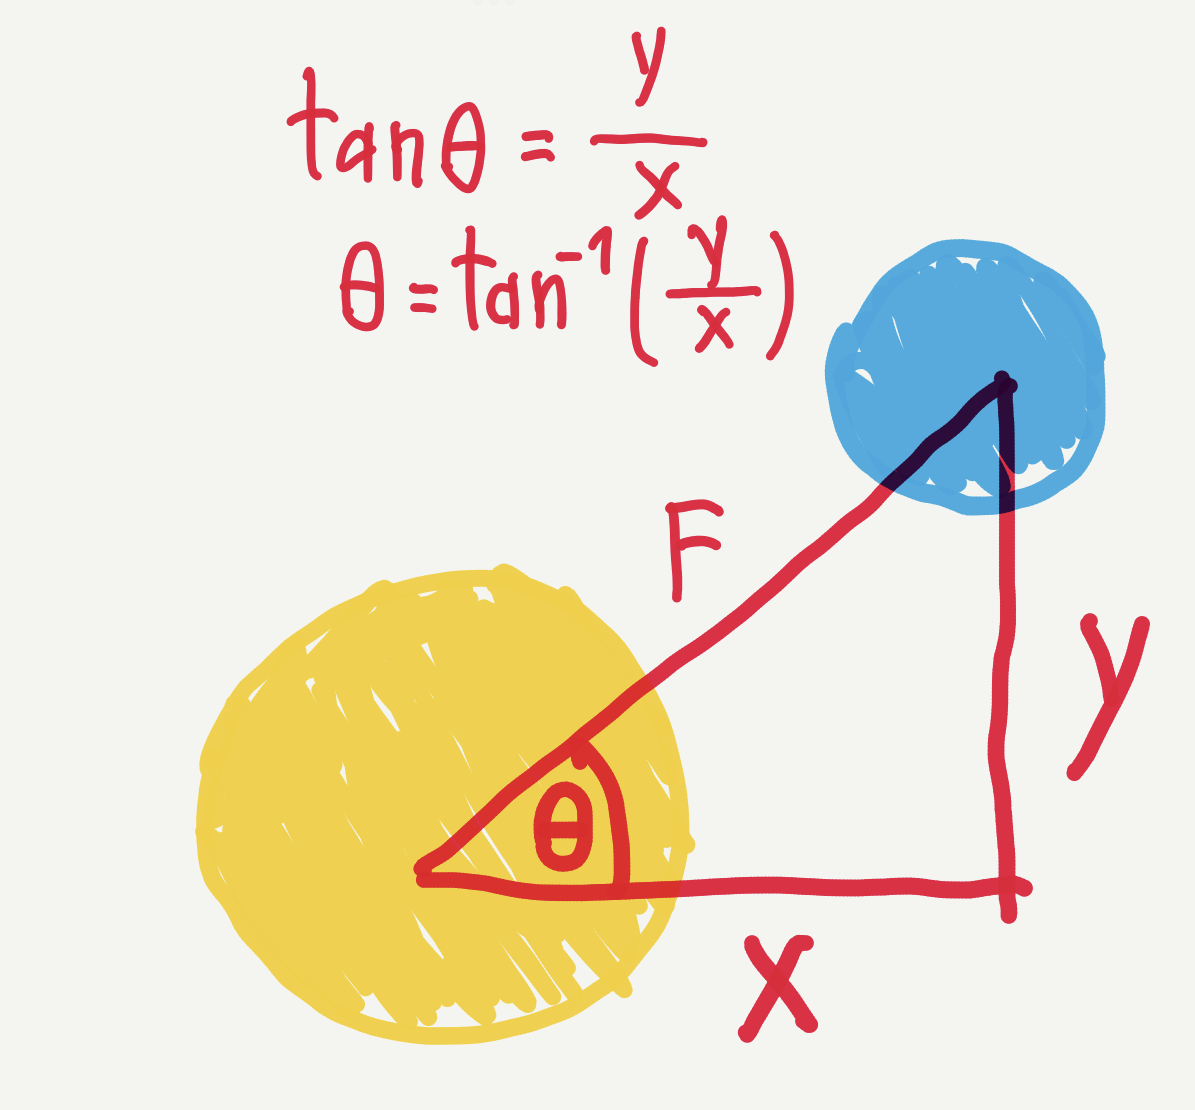 tanθ = y/x
θ = tan⁻¹(y/x)
F
θ
y
x